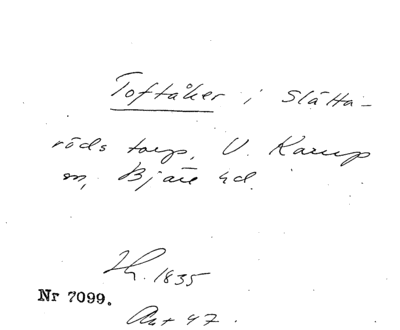 Toftåker i Slätta-
röds torp, V. Karup
sn, Bjäre hd.
Lh. 1835
Nr 7099.
Akt 47.